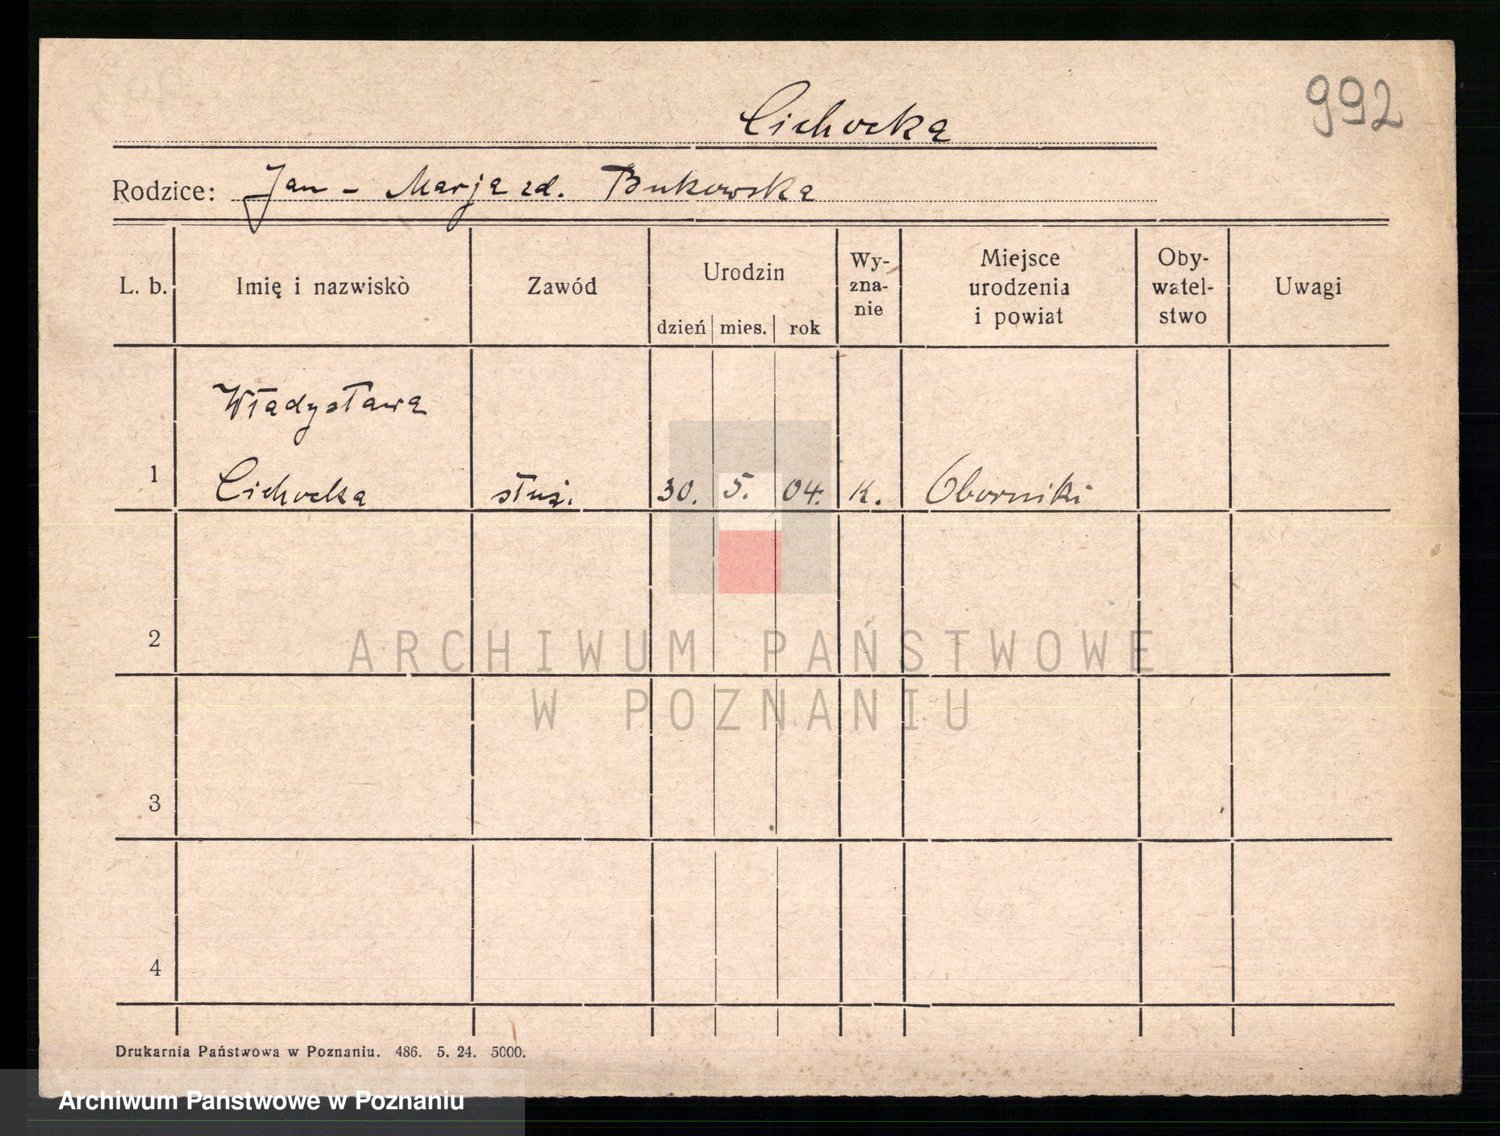 992
Cichocka
Rodzice: Jan - Marja zd. Bukowska
L. b. Imię i nazwisko Zawód Urodzin Wy-zna-nie Miejsce urodzenia i powiat Oby-watel-stwo Uwagi
dzień mies. rok
Władysława
1 Cichocka służ. 30. 5. 04. K. Oborniki
2
ARCHIWUM PAŃSTWOWE
W POZNANIU
3
4
Drukarnia Państwowa w Poznaniu. 486. 5. 24. 5000.
Archiwum Państwowe w Poznaniu